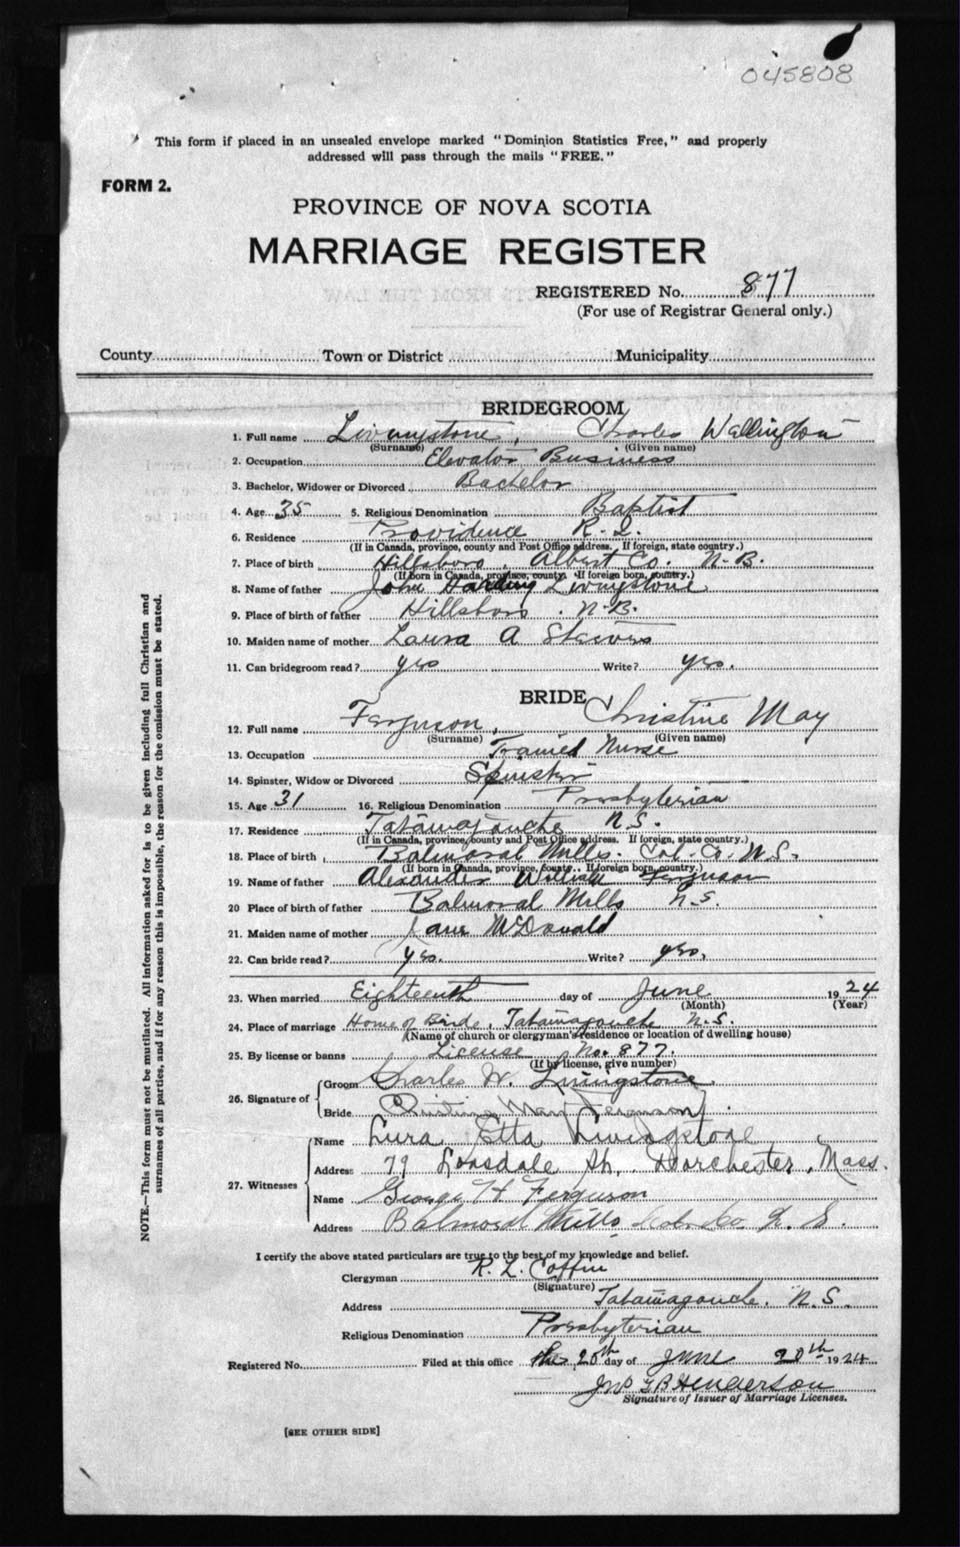 045808
This form if placed in an unsealed envelope marked "Dominion Statistics Free," and properly
addressed will pass through the mails "FREE."
FORM 2.
PROVINCE OF NOVA SCOTIA
MARRIAGE REGISTER
REGISTERED No. 877
(For use of Registrar General only.)
County Town or District Municipality
BRIDEGROOM
1. Full name Livingstone, Charles Wallington
(Surname) (Given name)
2. Occupation Elevator Business
3. Bachelor, Widower or Divorced Bachelor
4. Age 35 5. Religious Denomination Baptist
6. Residence Providence R.I.
(If in Canada, province, county and Post Office address. If foreign, state country.)
7. Place of birth Hillsboro, Albert Co. N.B.
(If born in Canada, province, county. If foreign born, country.)
8. Name of father John Harding Livingstone
9. Place of birth of father Hillsboro. N.B.
10. Maiden name of mother Laura A
11. Can bridegroom read? yes Write? yes.
BRIDE
12. Full name Ferguson, Christine May
(Surname) (Given name)
13. Occupation Trained Nurse
14. Spinster, Widow or Divorced Spinster
15. Age 31 16. Religious Denomination Presbyterian
17. Residence Tatamagouche N.S.
(If in Canada, province, county and Post Office address. If foreign, state country.)
18. Place of birth Balmoral Mills. Col. Co. N.S.
(If born in Canada, province, county. If foreign born, country.)
19. Name of father Alexander William Ferguson
20 Place of birth of father Balmoral Mills N.S.
21. Maiden name of mother Jane McDonald
22. Can bride read? yes. Write? yes.
23. When married Eighteenth day of June 1924
(Month) (Year)
24. Place of marriage Home of Bride, Tatamagouche N.S.
(Name of church or clergyman's residence or location of dwelling house)
25. By license or banns License No. 877.
(If by license, give number)
26. Signature of Groom Charles W. Livingstone
Bride Christine May Ferguson
27. Witnesses Name Lura Etta Livingstone
Address 79 Lonsdale St. Dorchester, Mass.
Name George H Ferguson
Address Balmoral Mills Col. Co. N.S.
I certify the above stated particulars are true to the best of my knowledge and belief.
Clergyman R. L. Coffin
(Signature)
Address Tatamagouche. N.S.
Religious Denomination Presbyterian
Registered No. Filed at this office the 20th day of June 20th 1924
Jno G B Henderson
Signature of Issuer of Marriage Licenses.
[SEE OTHER SIDE]
NOTE.—This form must not be mutilated. All information asked for is to be given including full Christian and
surnames of all parties, and if for any reason this is impossible, the reason for the omission must be stated.